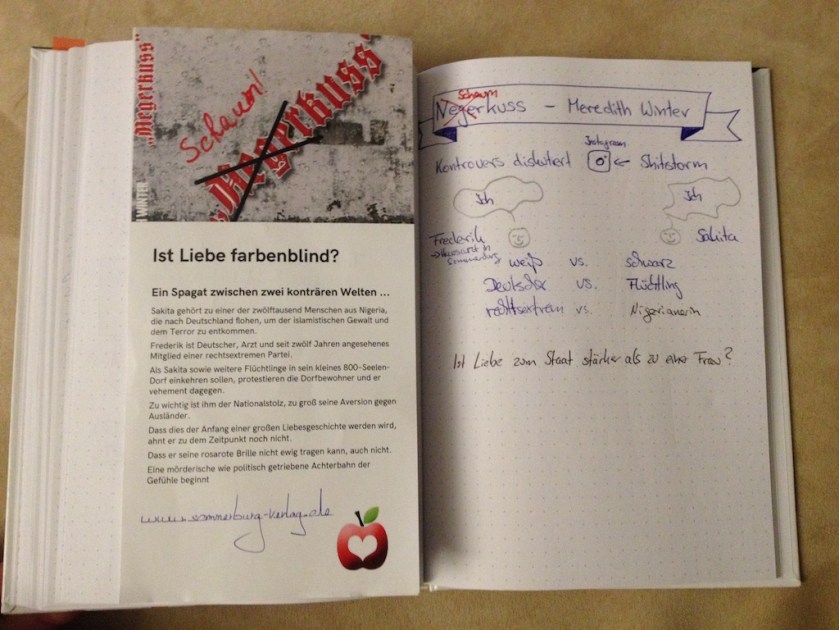 „Negerkuss“
Schaum!
„Negerkuss“
WINTER
Ist Liebe farbenblind?
Ein Spagat zwischen zwei konträren Welten ...
Sakita gehört zu einer der zwölftausend Menschen aus Nigeria,
die nach Deutschland flohen, um der islamistischen Gewalt und
dem Terror zu entkommen.
Frederik ist Deutscher, Arzt und seit zwölf Jahren angesehenes
Mitglied einer rechtsextremen Partei.
Als Sakita sowie weitere Flüchtlinge in sein kleines 800-Seelen-
Dorf einkehren sollen, protestieren die Dorfbewohner und er
vehement dagegen.
Zu wichtig ist ihm der Nationalstolz, zu groß seine Aversion gegen
Ausländer.
Dass dies der Anfang einer großen Liebesgeschichte werden wird,
ahnt er zu dem Zeitpunkt noch nicht.
Dass er seine rosarote Brille nicht ewig tragen kann, auch nicht.
Eine mörderische wie politisch getriebene Achterbahn der
Gefühle beginnt
www.sommerburg-verlag.de
Schaum
Negerkuss – Meredith Winter
Instagram
Kontrovers diskutiert ← Shitstorm
Ich Ich
Frederik Sakita
→ Hausarzt in
Sommerburg
weiß vs. schwarz
Deutscher vs. Flüchtling
rechtsextrem vs. Nigerianerin
Ist Liebe zum Staat stärker als zu einer Frau?